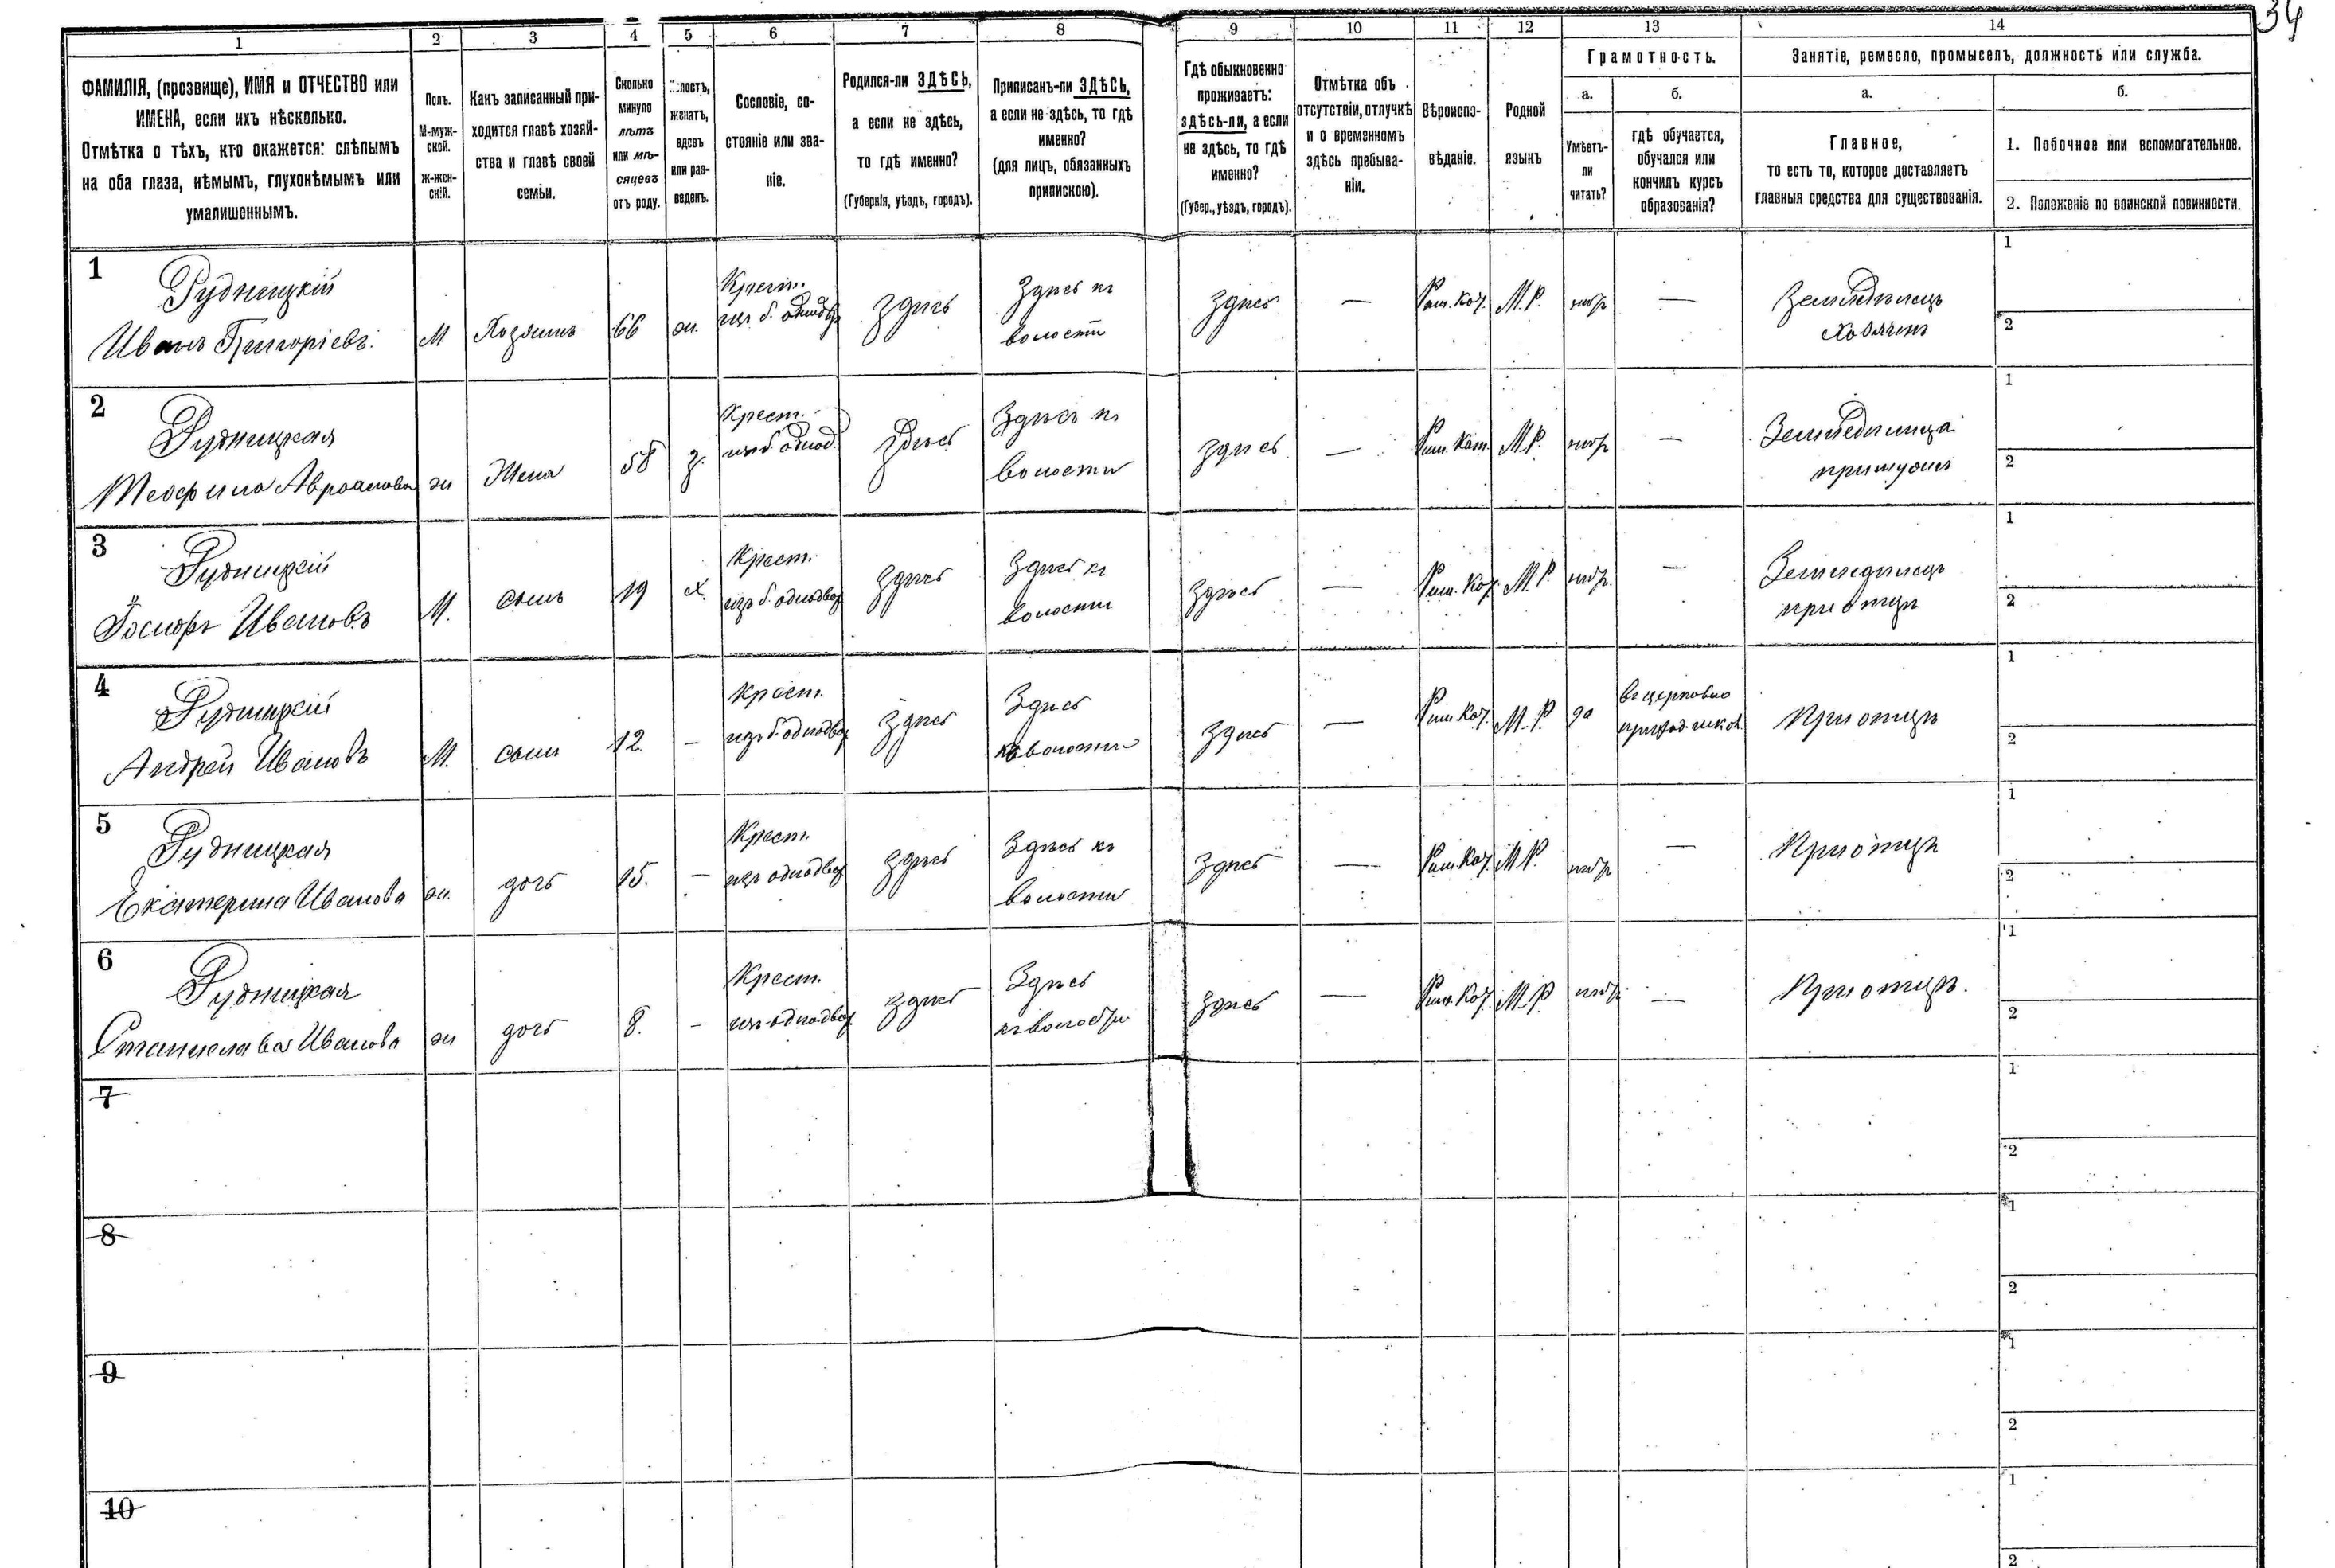 34
1 2 3 4 5 6 7 8 9 10 11 12 13 14
ФАМИЛІЯ, (прозвище), ИМЯ и ОТЧЕСТВО или
ИМЕНА, если ихъ нѣсколько.
Отмѣтка о тѣхъ, кто окажется: слѣпымъ
на оба глаза, нѣмымъ, глухонѣмымъ или
умалишеннымъ.
Полъ.
М-муж-
ской.
ж-жен-
скій.
Какъ записанный при-
ходится главѣ хозяй-
ства и главѣ своей
семьи.
Сколько
минуло
лѣтъ
или мѣ-
сяцевъ
отъ роду.
лостъ,
женатъ,
вдовъ
или раз-
веденъ.
Сословіе, со-
стояніе или зва-
ніе.
Родился-ли ЗДѢСЬ,
а если не здѣсь,
то гдѣ именно?
(Губернія, уѣздъ, городъ).
Приписанъ-ли ЗДѢСЬ,
а если не здѣсь, то гдѣ
именно?
(для лицъ, обязанныхъ
припискою).
Гдѣ обыкновенно
проживаетъ:
здѣсь-ли, а если
не здѣсь, то гдѣ
именно?
(Губер., уѣздъ, городъ).
Отмѣтка объ
отсутствіи, отлучкѣ
и о временномъ
здѣсь пребыва-
ніи.
Вѣроиспо-
вѣданіе.
Родной
языкъ
Грамотность.
а.
Умѣетъ-
ли
читать?
б.
гдѣ обучается,
обучался или
кончилъ курсъ
образованія?
Занятіе, ремесло, промыселъ, должность или служба.
а.
Главное,
то есть то, которое доставляетъ
главныя средства для существованія.
б.
1. Побочное или вспомогательное.
2. Положеніе по воинской повинности.
1
Рудницкій
Иванъ Григоріевъ.
М
Хозяинъ
66
ж.
Крест.
изъ б. однодвор
здѣсь
Здѣсь къ
волости
здѣсь
—
Рим. Кат.
М.Р.
нѣтъ
—
Земледѣлецъ
хозяинъ
1
2
2
Рудницкая
Теофила Авраамова
ж
Жена
58
з.
Крест.
изъ б. однод.
здѣсь
Здѣсь къ
волости
здѣсь
—
Рим. Кат.
М.Р.
нѣтъ
—
Земледѣлица
при мужѣ
1
2
3
Рудницкій
Іосифъ Ивановъ
М.
сынъ
19
х.
Крест.
изъ б. однодвор
здѣсь
Здѣсь къ
волости
здѣсь
—
Рим. Кат.
М.Р.
нѣтъ.
—
Земледѣлецъ
при отцѣ
1
2
4
Рудницкій
Андрей Ивановъ
М.
сынъ
12.
—
Крест.
изъ б. однодвор
здѣсь
Здѣсь
къ волости
здѣсь
—
Рим. Кат.
М.Р.
да
въ церковно
приход. школ.
При отцѣ
1
2
5
Рудницкая
Екатерина Иванова
ж.
дочь
15.
—
Крест.
изъ однодвор
здѣсь
Здѣсь къ
волости
здѣсь
—
Рим. Кат.
М.Р.
нѣтъ
—
При отцѣ
1
2
6
Рудницкая
Станислава Иванова
ж
дочь
8.
—
Крест.
изъ однодвор
здѣсь
Здѣсь
къ волости
здѣсь
—
Рим. Кат.
М.Р
нѣтъ
—
При отцѣ.
1
2
7
1
2
8
1
2
9
1
2
10
1
2